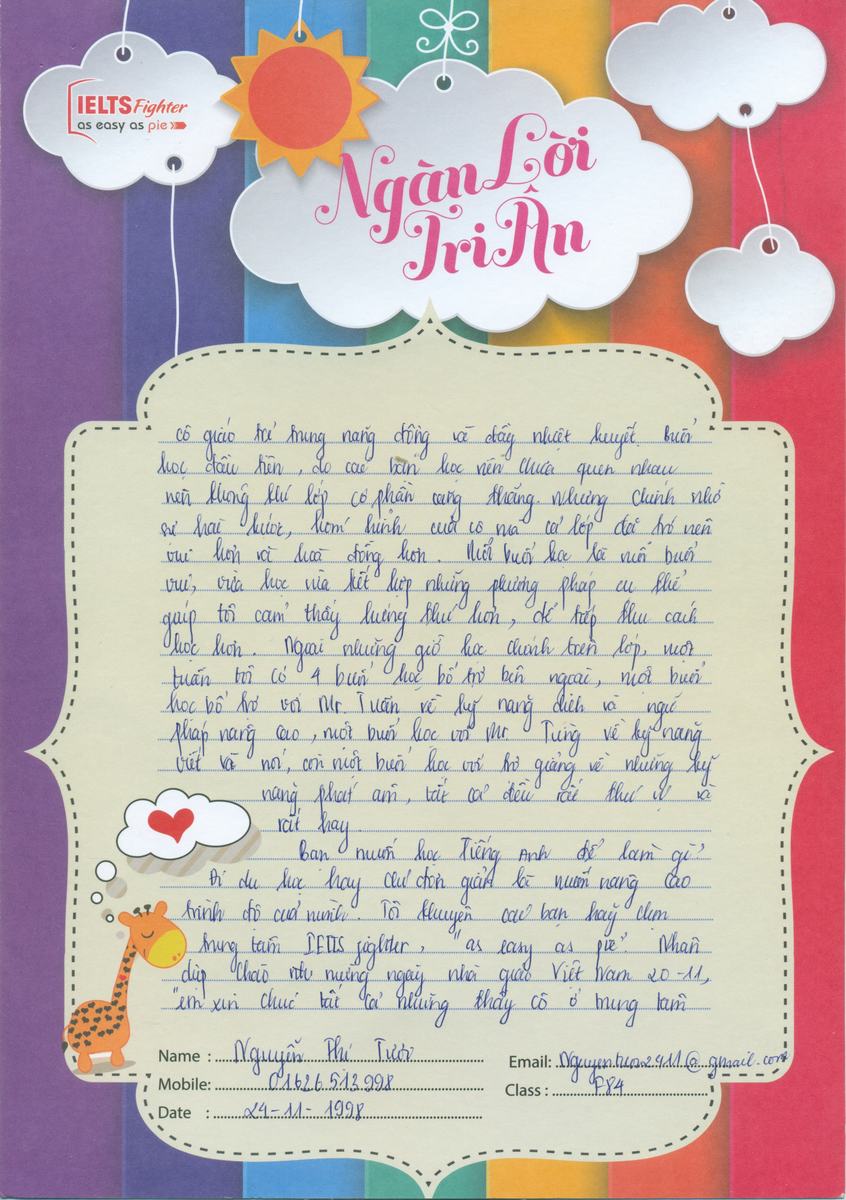 IELTS Fighter
as easy as pie
Ngàn Lời
Tri Ân
cô giáo trẻ trung năng động và đầy nhiệt huyết. Buổi
học đầu tiên, do các bạn học viên chưa quen nhau
nên không khí lớp có phần căng thẳng. Nhưng chính nhờ
sự hài hước, hóm hỉnh của cô mà cả lớp đã trở nên
vui hơn và hoà đồng hơn. Mỗi buổi học là một buổi
vui, vừa học vừa kết hợp những phương pháp cụ thể
giúp tôi cảm thấy hứng thú hơn, dễ tiếp thu cách
học hơn. Ngoài những giờ học chính trên lớp, một
tuần tôi có 4 buổi học bổ trợ bên ngoài, một buổi
học bổ trợ với Mr. Tuấn về kỹ năng dịch và ngữ
pháp nâng cao, một buổi học với Mr Tùng về kỹ năng
viết và nói, còn một buổi học với trợ giảng về những kỹ
năng phát âm, tất cả đều rất thú vị và
rất hay.
Bạn muốn học Tiếng Anh để làm gì?
Đi du học hay chỉ đơn giản là muốn nâng cao
trình độ của mình. Tôi khuyên các bạn hãy chọn
trung tâm IELTS fighter, "as easy as pie". Nhân
dịp chào mừng ngày nhà giáo Việt Nam 20-11,
"em xin chúc tất cả những thầy cô ở trung tâm
Name : Nguyễn Thị Tươi
Email: @gmail.com
Mobile: 01626513998
Class : F84
Date : 24-11-1998